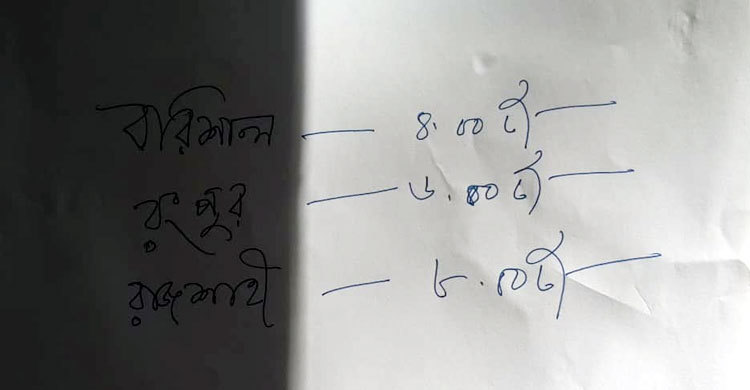 বরিশাল — ৪.০০ টা —
রংপুর — ৬.০০ টা —
রাজশাহী — ৮.০০ টা —